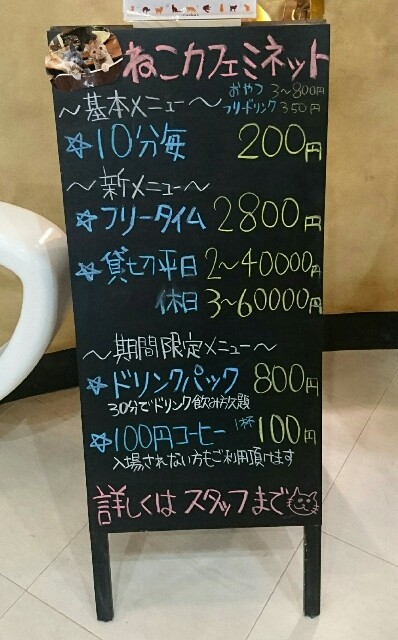 ねこカフェミネット
おやつ 3~800円
フリードリンク 350円
~基本メニュー~
☆10分毎 200円
~新メニュー~
☆フリータイム 2800円
☆貸切平日 2~40000円
休日 3~60000円
~期間限定メニュー~
☆ドリンクパック 800円
30分でドリンク飲み放題
☆100円コーヒー 1杯 100円
入場されない方もご利用頂けます
詳しくはスタッフまで